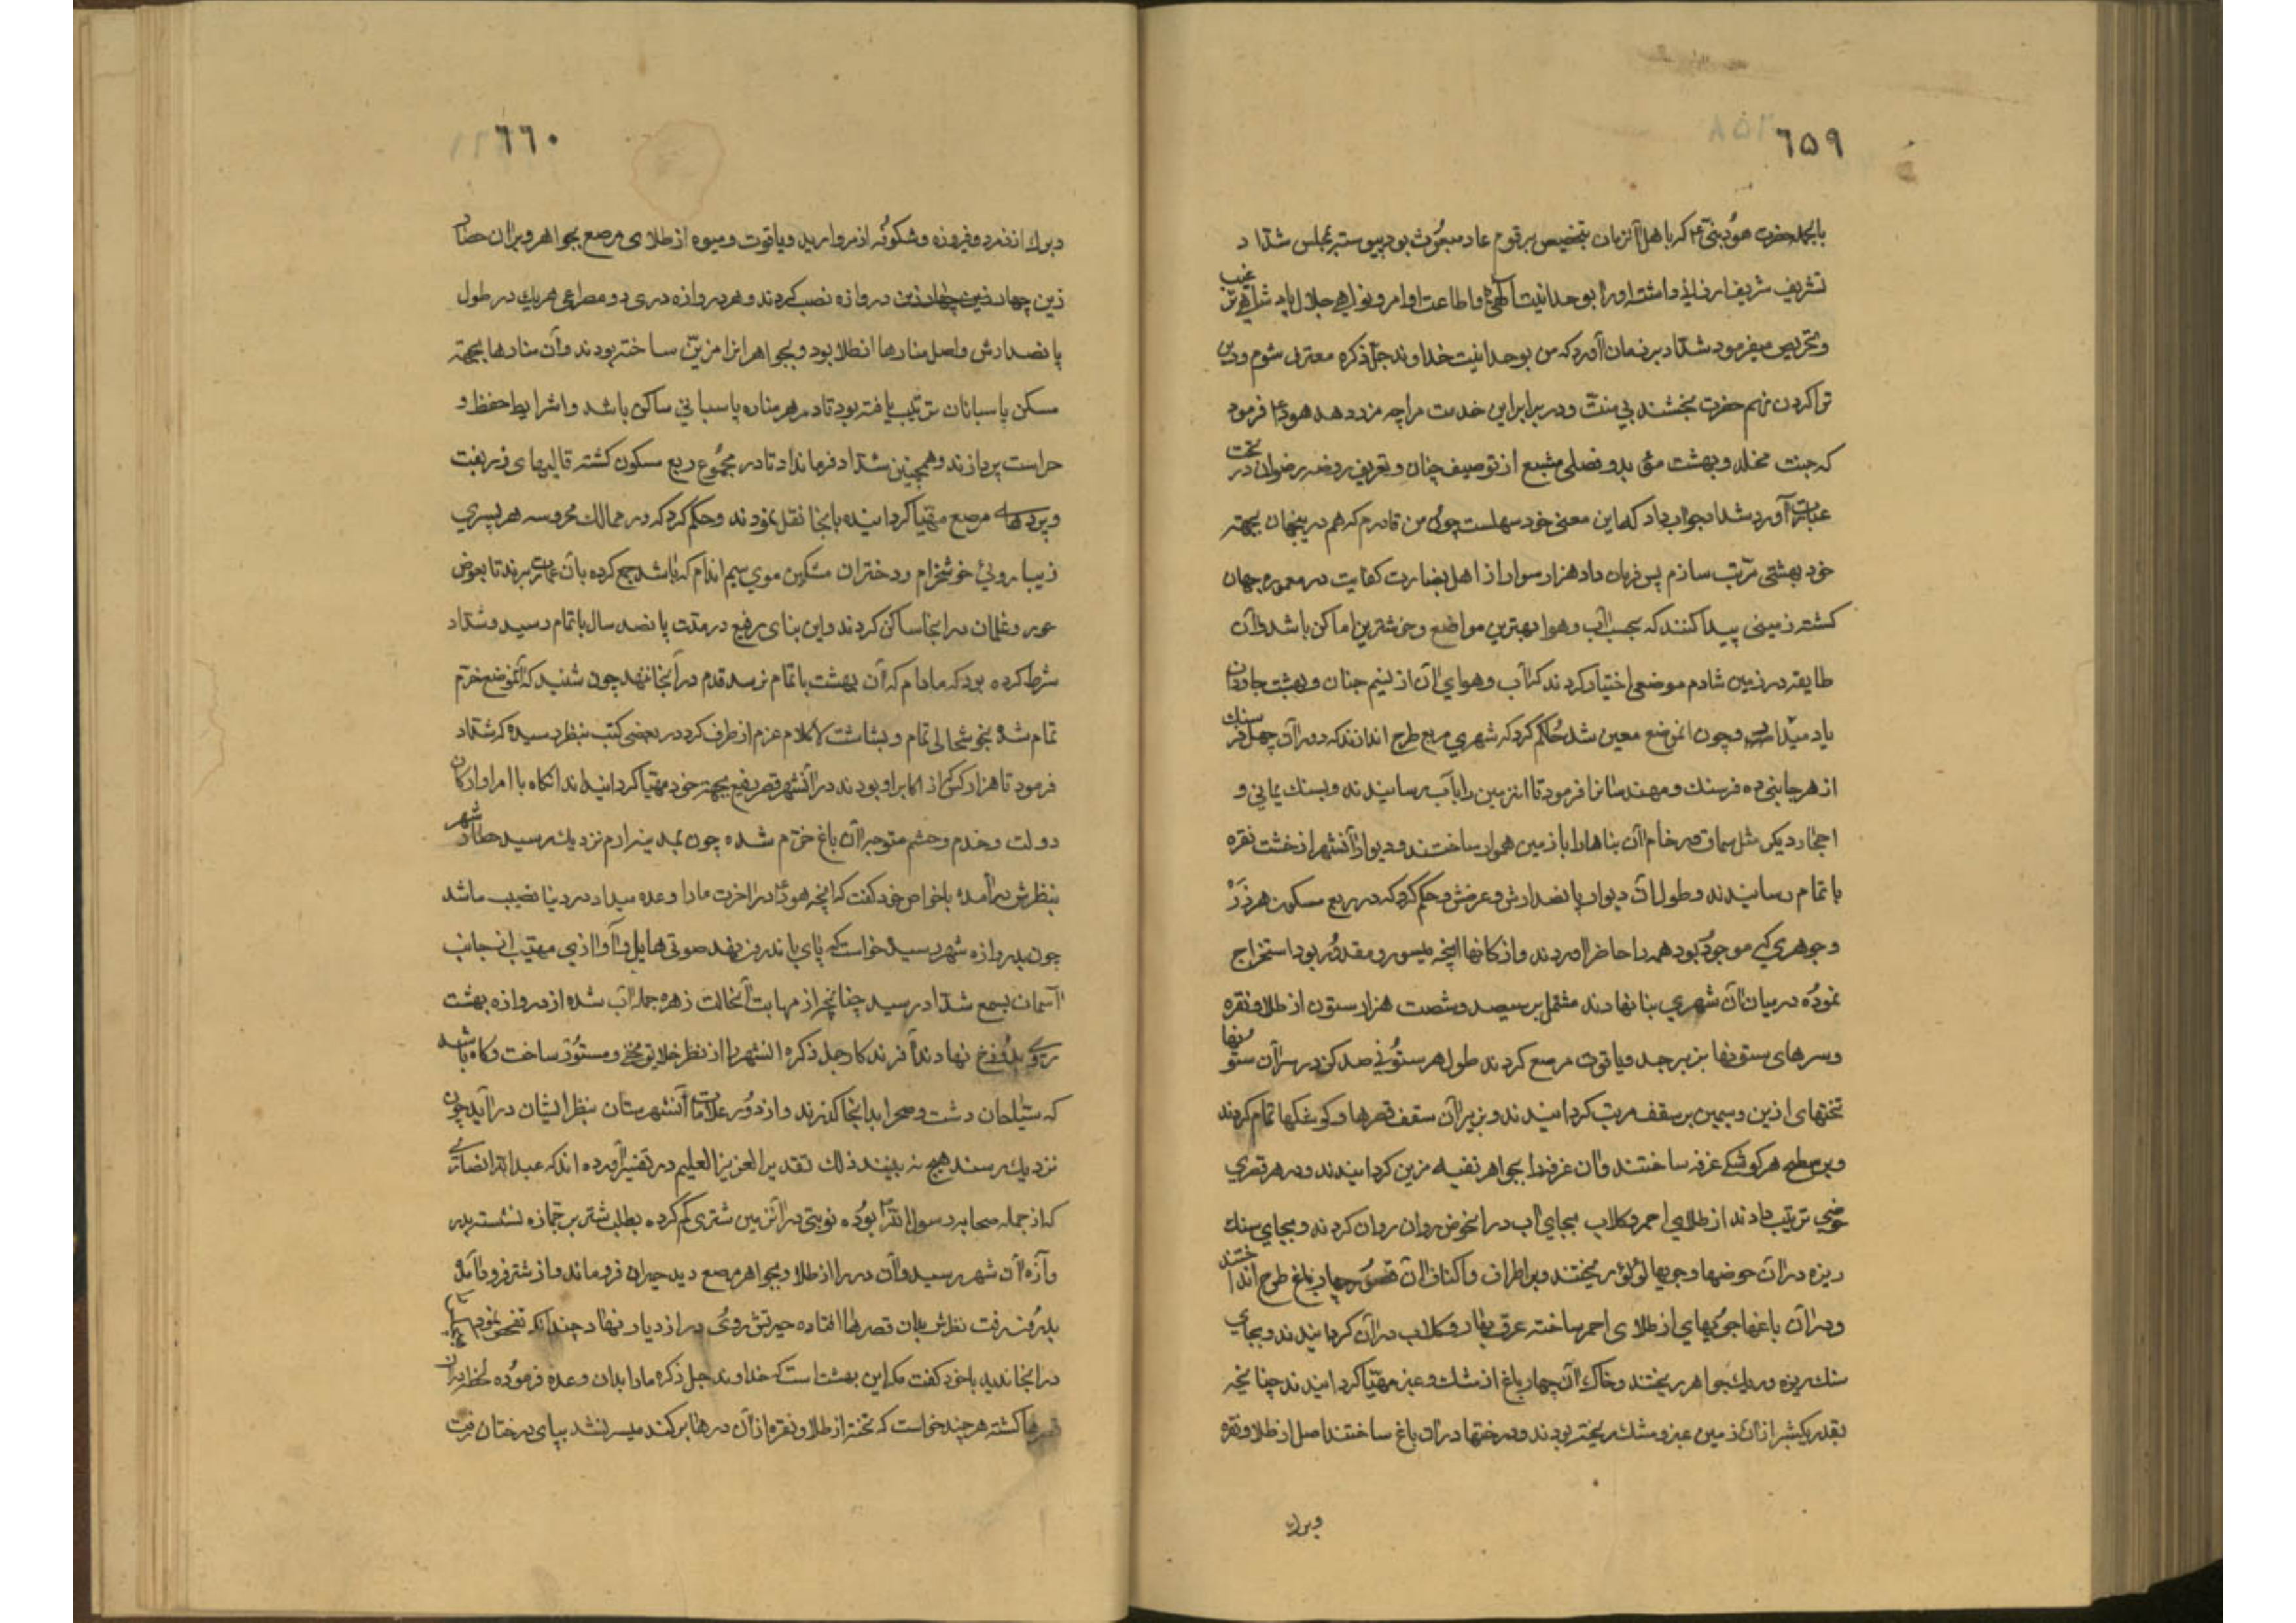 ٦٥٩
بالجمله حضرت هود نبی ع که باهل آنزمان بتخصیص بر قوم عاد مبعوث بود پیوسته بمجلس شداد
تشریف شریف ارزانی داشته او را بوحدانیت الهی و اطاعت اوامر و نواهی جلال پادشاهی ترغیب
و تحریص میفرمود شداد بر زبان آورد که من بوحدانیت خداوند جل ذکره معترف شوم و دین
ترا کردن نهم حضرت بخشند بی منت و در برابر این خدمت مرا چه مزد دهد هود ع فرمود
که جنت مخلد و بهشت مؤبد و فصلی مشبع از توصیف جنان و تعریف روضه رضوان در تحت
عبارت آورد شداد جواب داد که این معنی خود سهلست چون من قادرم که هم در ینجهان بجهته
خود بهشتی مرتب سازم پس فرمان داد هزار سوار از اهل بضارت کفایت در معموره جهان
کشته زمینی پیدا کنند که بحسب آب و هوا بهترین مواضع و خوشترین اماکن باشد و آن
طایفه در زمین شادم موضعی اختیار کردند که آب و هوای آن از نسیم جنان و بهشت جاودان
یاد میداد و چون انموضع معین شد حکم کرد که شهری مربع طرح اندازند که دور آن چهل فرسنك
از هر جانبی ده فرسنك و مهندسانرا فرمود تا انزمین را بآب رسانیدند و بسنك یمانی و
احجار دیکر مثل سماق و رخام آن بناها را با زمین هموار ساختند و دیوار آنشهر از خشت نقره
باتمام رسانیدند و طول ان دیوار پانصد ارش و عرضش و حکم کرد که در ربع مسکون هر زر
و جوهری که موجود بود همه را حاضر اوردند و از کانها انچه میسور و مقدور بود استخراج
نموده در میان آن شهری بنا نهادند مشتمل بر سیصد و شصت هزار ستون از طلا و نقره
و سرهای ستونها بزبرجد و یاقوت مرصع کردند طول هر ستونی صد کز و در سر آن ستونها
تختهای ازین و سیمین بر سقف مرتب کردانیدند و بزیر آن سقف قصرها و کوشکها تمام کردند
و بر سطح هر کوشکی غرفه ساختند و ان غرفه را بجواهر نفیسه مزین کردانیدند و در هر قصری
حوضی ترتیب دادند از طلای احمر و کلاب بجای آب در انحوض روان روان کردند و بجای سنك
ریزه در آن حوضها و جویها لؤلؤ ریختند و بر اطراف و اکناف آن قصور چهار باغ طرح انداختند
و در آن باغها جویهای از طلای احمر ساخته عرق بهار و کلاب در آن کردانیدند و بجای
سنك ریزه و ریك جواهر ریختند و خاك آن چهار باغ از مشك و عنبر مهیا کردانیدند چنانچه
بقدر یکشبر از آن زمین عنبر و مشك ریخته بودند و درختها در ان باغ ساختند اصل از طلا و نقره
و برك
٦٦٠
و برك از زمرد و فیروزه و شکوفه از مروارید و یاقوت و میوه از طلای مرصع بجواهر و بران حصار
زین چهار زین چهار زین دروازه نصب کردند و هر دروازه دری دو مصراعی هر یك در طول
پانصد ارش و اصل منارها از طلا بود و بجواهر انرا مزین ساخته بودند و آن منارها بجهته
مسکن پاسبانان ترتیب یافته بود تا در هر مناره پاسبانی ساکن باشد و اشرایط حفظ و
حراست پردازند و همچنین شداد فرمانداد تا در مجموع ربع مسکون کشته قالیهای زربفت
و پردهاء مرصع مهیا کردانیده بانجا نقل نمودند و حکم کرد که در ممالك محروسه هر پسری
زیبا روئی خوشخرام و دختران مشکین موی سیم اندام که باشد جمع کرده بآن عمارت برند تا بعوض
حور و غلمان در انجا ساکن کردند و این بنای رفیع در مدت پانصد سال باتمام رسید و شداد
شرط کرده بود که مادام که آن بهشت باتمام نرسد قدم در آنجا ننهد چون شنید که آنموضع خرم
تمام شد بخوشحالی تمام و بشاشت لا کلام عزم از طرف کرد در بعضی کتب بنظر رسیده که شداد
فرمود تا هزار کس از اکابر او بودند در آنشهر قصر رفیع بجهته خود مهیا کردانیدند انکاه با امرا و ارکان
دولت و خدم و حشم متوجه آن باغ خرم شده چون بمدینه ارم نزدیك رسید حصار شهر
بنظرش درآمده با خواص خود کفت که انچه هود ع در اخرت ما را وعده میداد در دنیا نصیب ما شد
چون بدروازه شهر رسید خواست که پای باندرون نهد صوتی هایل و آوازی مهیب از جانب
آسمان بسمع شداد رسید چنانچه از مهابت آنحالت زهره جمله آب شده از دروازه بهشت
روی بدوزخ نهادند آفرندکار جل ذکره انشهر را از نظر خلایق مخفی و مستور ساخت و کاه باشد
که سیاحان دشت و صحرا بدانجا کذرند و از دور علامات آنشهرستان بنظر ایشان در آید چون
نزدیك رسند هیچ نه بینند ذلك تقدیر العزیز العلیم در تفسیر آورده اند که عبدالله انصاری
که از جمله صحابه رسول الله بوده نوبتی در آنزمین شتری کم کرده بطلب شتر بر جمازه نشسته بدر
وآزه آن شهر رسید و آن در را از طلا و بجواهر مرصع دید حیران فرو ماند و از شتر فرود آمد
بدرون رفت نظرش بدان قصرها افتاده حیرتش روی در ازدیاد نهاد چندانکه تفحص نمود
در انجا ندید با خود کفت مکر این بهشت است که خداوند جل ذکره ما را بدان وعده فرموده لحظه در آن
قصرها کشته هر چند خواست که تخته از طلا و نقره از آن درها برکند میسر نشد بپای درختان رفت